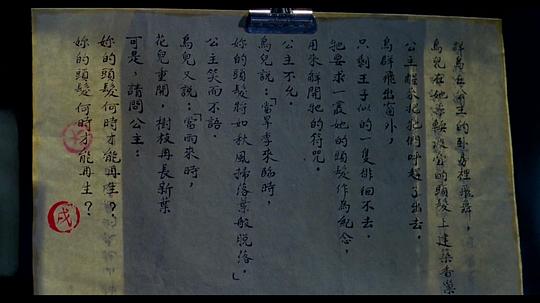 群鳥在公主的卧房裡飛舞，
鳥兒在她的頭髮上建築香巢
公主把牠們呼趕了出去。
鳥群飛出窗外，
只剩王子似的一隻徘徊不去。
牠要求一叢她的頭髮作為紀念，
用來解開牠的符咒。
公主不允。
鳥兒說：「當旱季來臨時，
妳的頭髮將如秋風掃落葉般脫落。」
公主笑而不語。
鳥兒又說：「當雨來時，
花兒重開，樹枝再長新葉
可是，請問公主：
妳的頭髮何時才能再生？
妳的頭髮何時才能再生？
戌